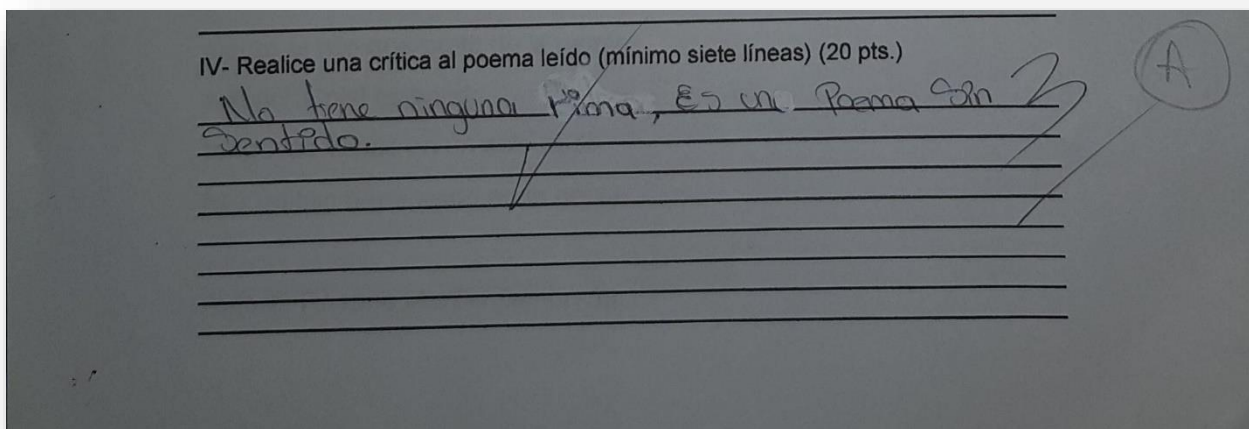 IV- Realice una crítica al poema leído (mínimo siete líneas) (20 pts.)
A
No tiene ninguna rima, Es un Poema Sin
Sentido.